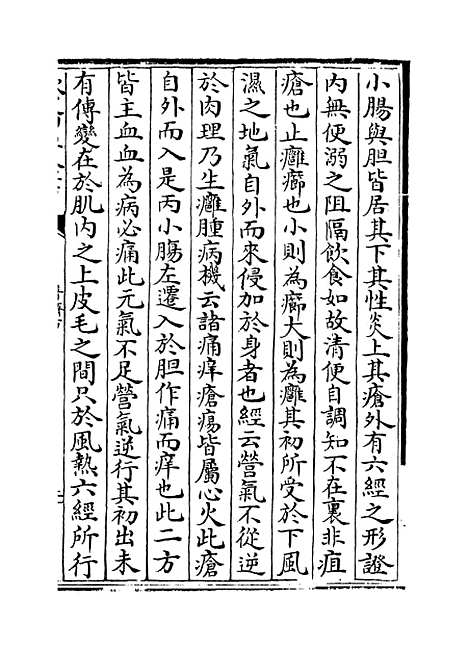 小腸與胆皆居其下其性炎上其瘡外有六經之形證
内無便溺之阻隔飲食如故清便自調知不在裏非疽
瘡也止癰癤也小則為癤大則為癰其初所受於下風
濕之地氣自外而來侵加於身者也經云營氣不從逆
於肉理乃生癰腫病機云諸痛痒瘡瘍皆屬心火此瘡
自外而入是丙小腸左遷入於胆作痛而痒也此二方
皆主血血為病必痛此元氣不足營氣逆行其初出未
有傳變在於肌肉之上皮毛之間只於風熱六經所行